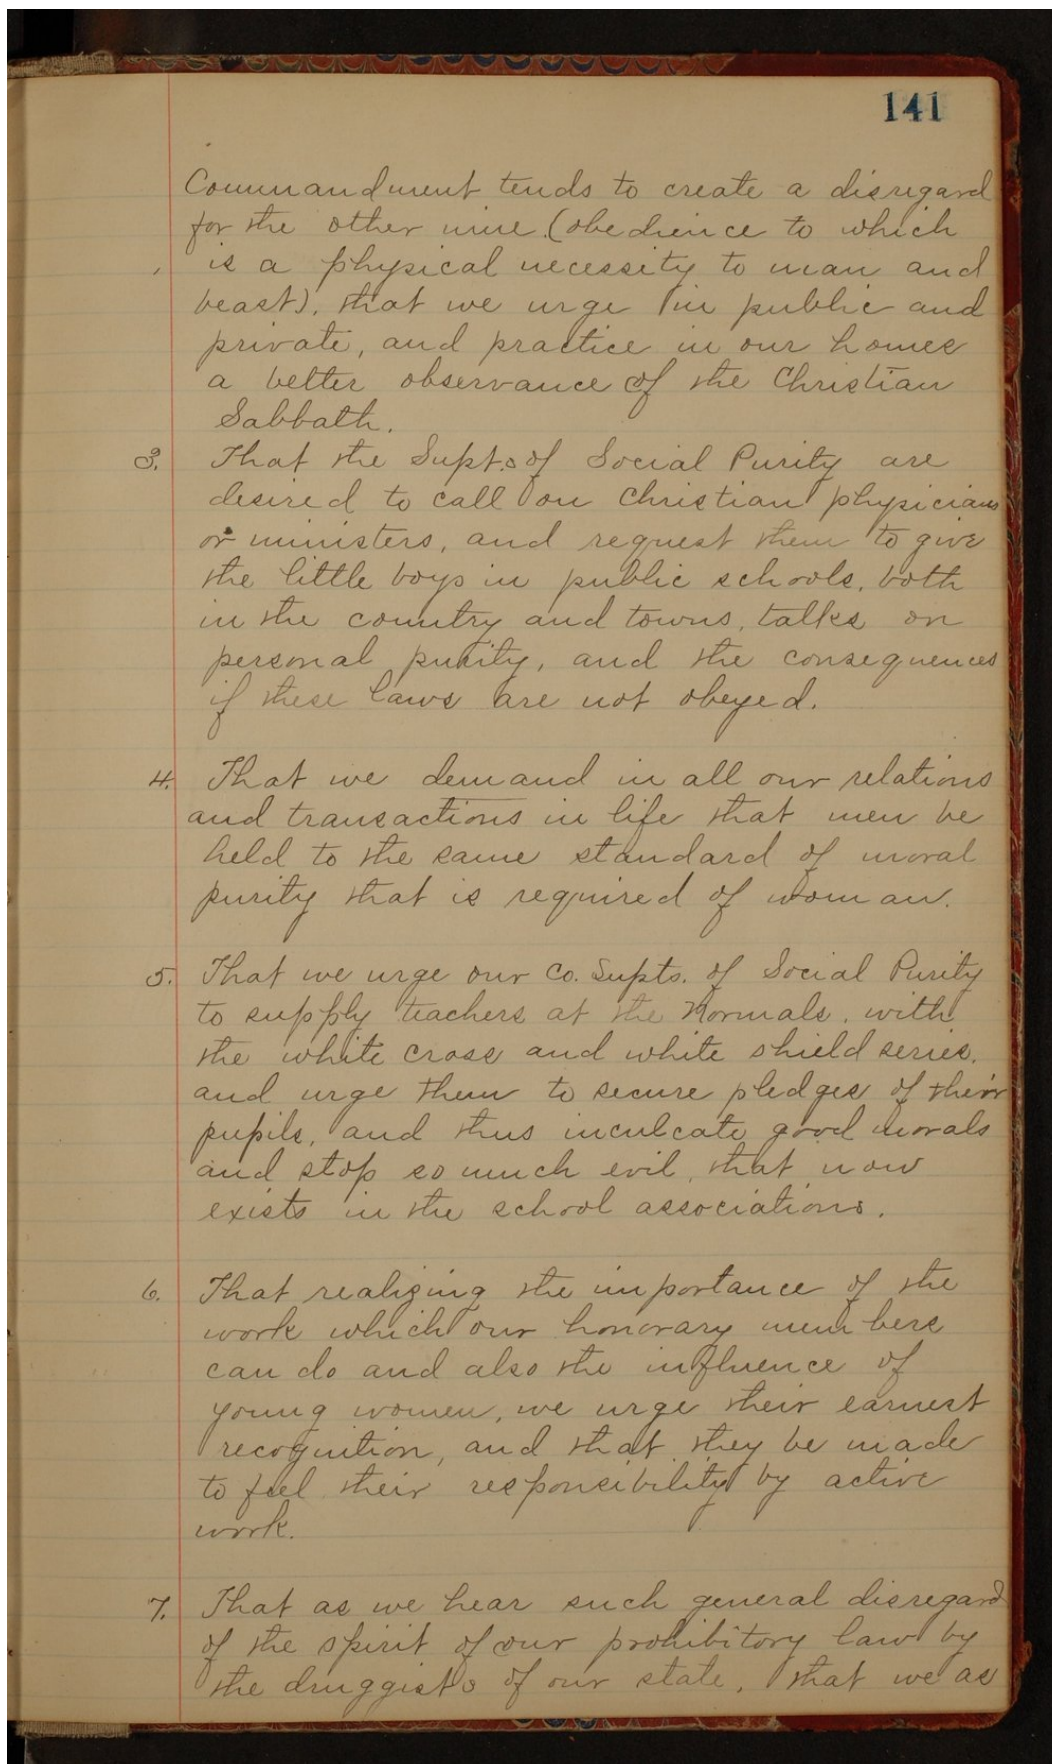 141
Commandment tends to create a disregard
for the other nine (obedience to which
is a physical necessity to man and
beast), that we urge in public and
private, and practice in our homes
a better observance of the Christian
Sabbath.
3. That the Supts of Social Purity are
desired to call on Christian physicians
or ministers, and request them to give
the little boys in public schools, both
in the country and towns, talks on
personal purity, and the consequences
if these laws are not obeyed.
4. That we demand in all our relations
and transactions in life that men be
held to the same standard of moral
purity that is required of woman.
5. That we urge our Co. Supts. of Social Purity
to supply teachers at the Normals, with
the white cross and white shield series,
and urge them to secure pledges of their
pupils, and thus inculcate good morals
and stop so much evil, that now
exists in the school associations.
6. That realizing the importance of the
work which our honorary members
can do and also the influence of
young women, we urge their earnest
recognition, and that they be made
to feel their responsibility by active
work.
7. That as we hear such general disregard
of the spirit of our prohibitory law by
the druggists of our state, that we as